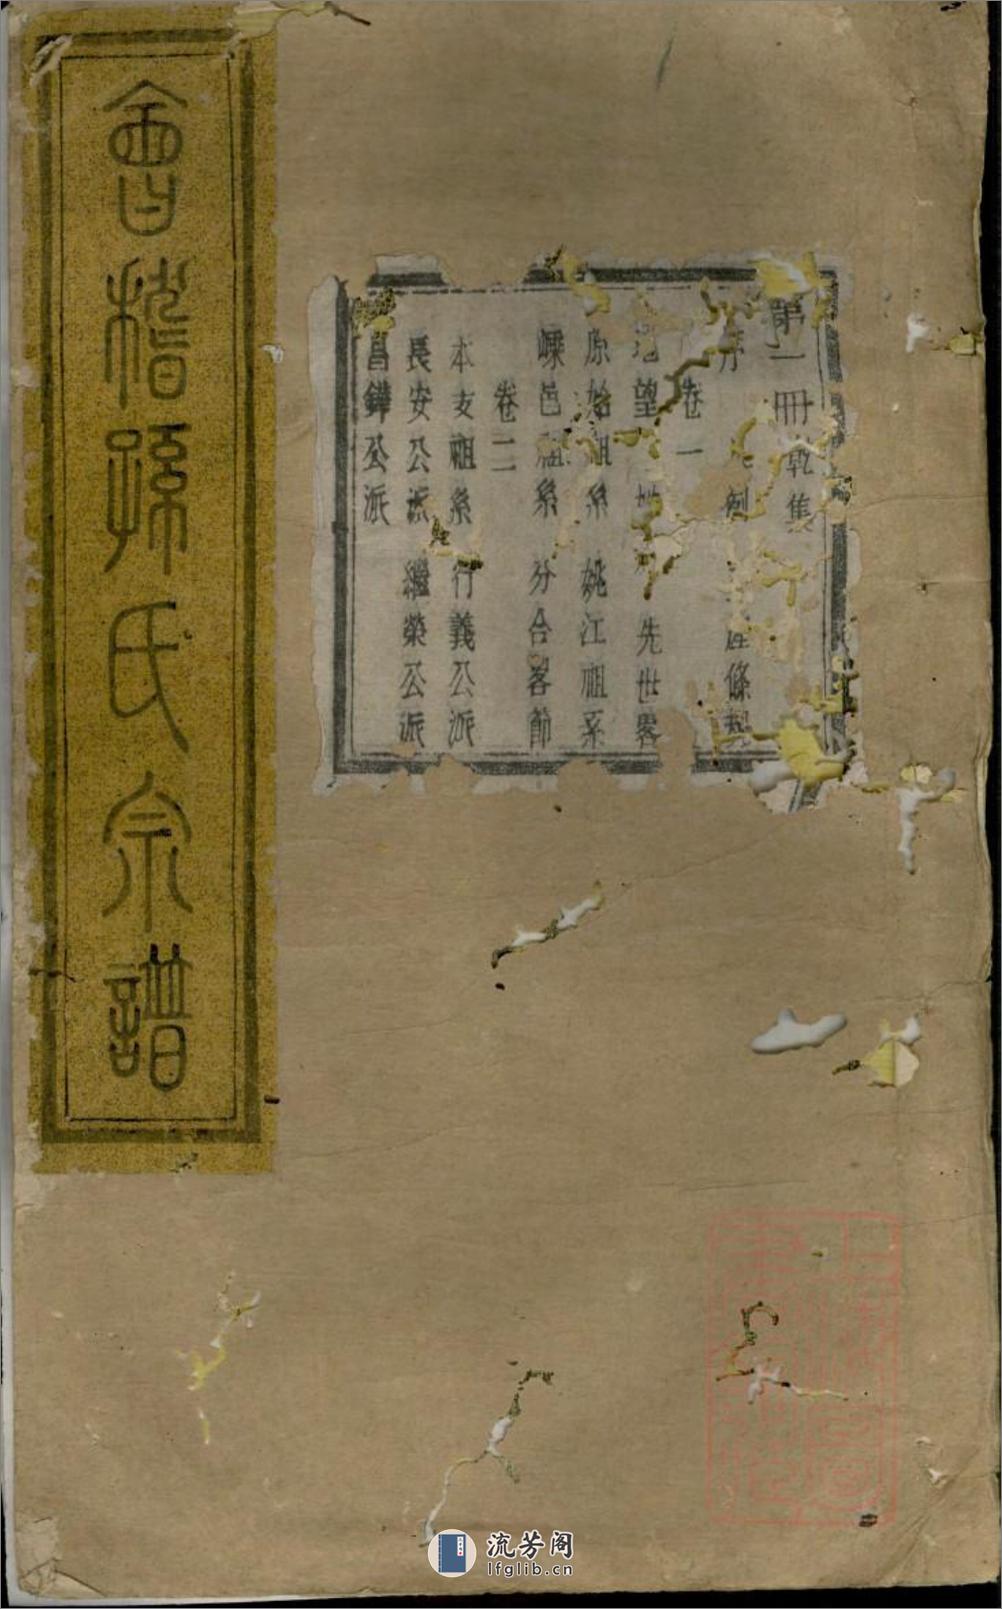 會稽孫氏宗譜
第一冊 乾集
序 例 條規
卷一
望 先世畧
原始祖系 姚江祖系
嵊邑祖系 分合畧節
卷二
本支祖系 行義公派
長安公派 繼榮公派
昌鏵公派
流芳阁
lfglib.cn